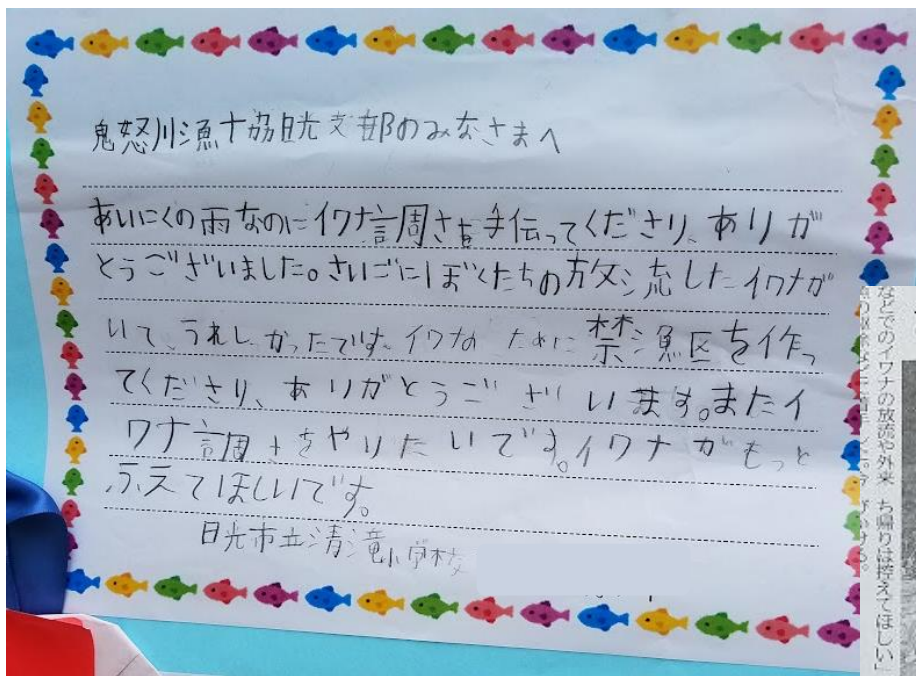 鬼怒川漁協日光支部のみなさまへ
あいにくの雨なのにイワナ調さを手伝ってくださり、ありが
とうございました。さいごにぼくたちの放流したイワナが
いて、うれしかったです。イワナのために禁漁区を作っ
てくださり、ありがとうございます。またイ
ワナ調さをやりたいです。イワナがもっと
ふえてほしいです。
日光市立清滝小学校
などでのイワナの放流や外来
ち帰りは控えてほしい」